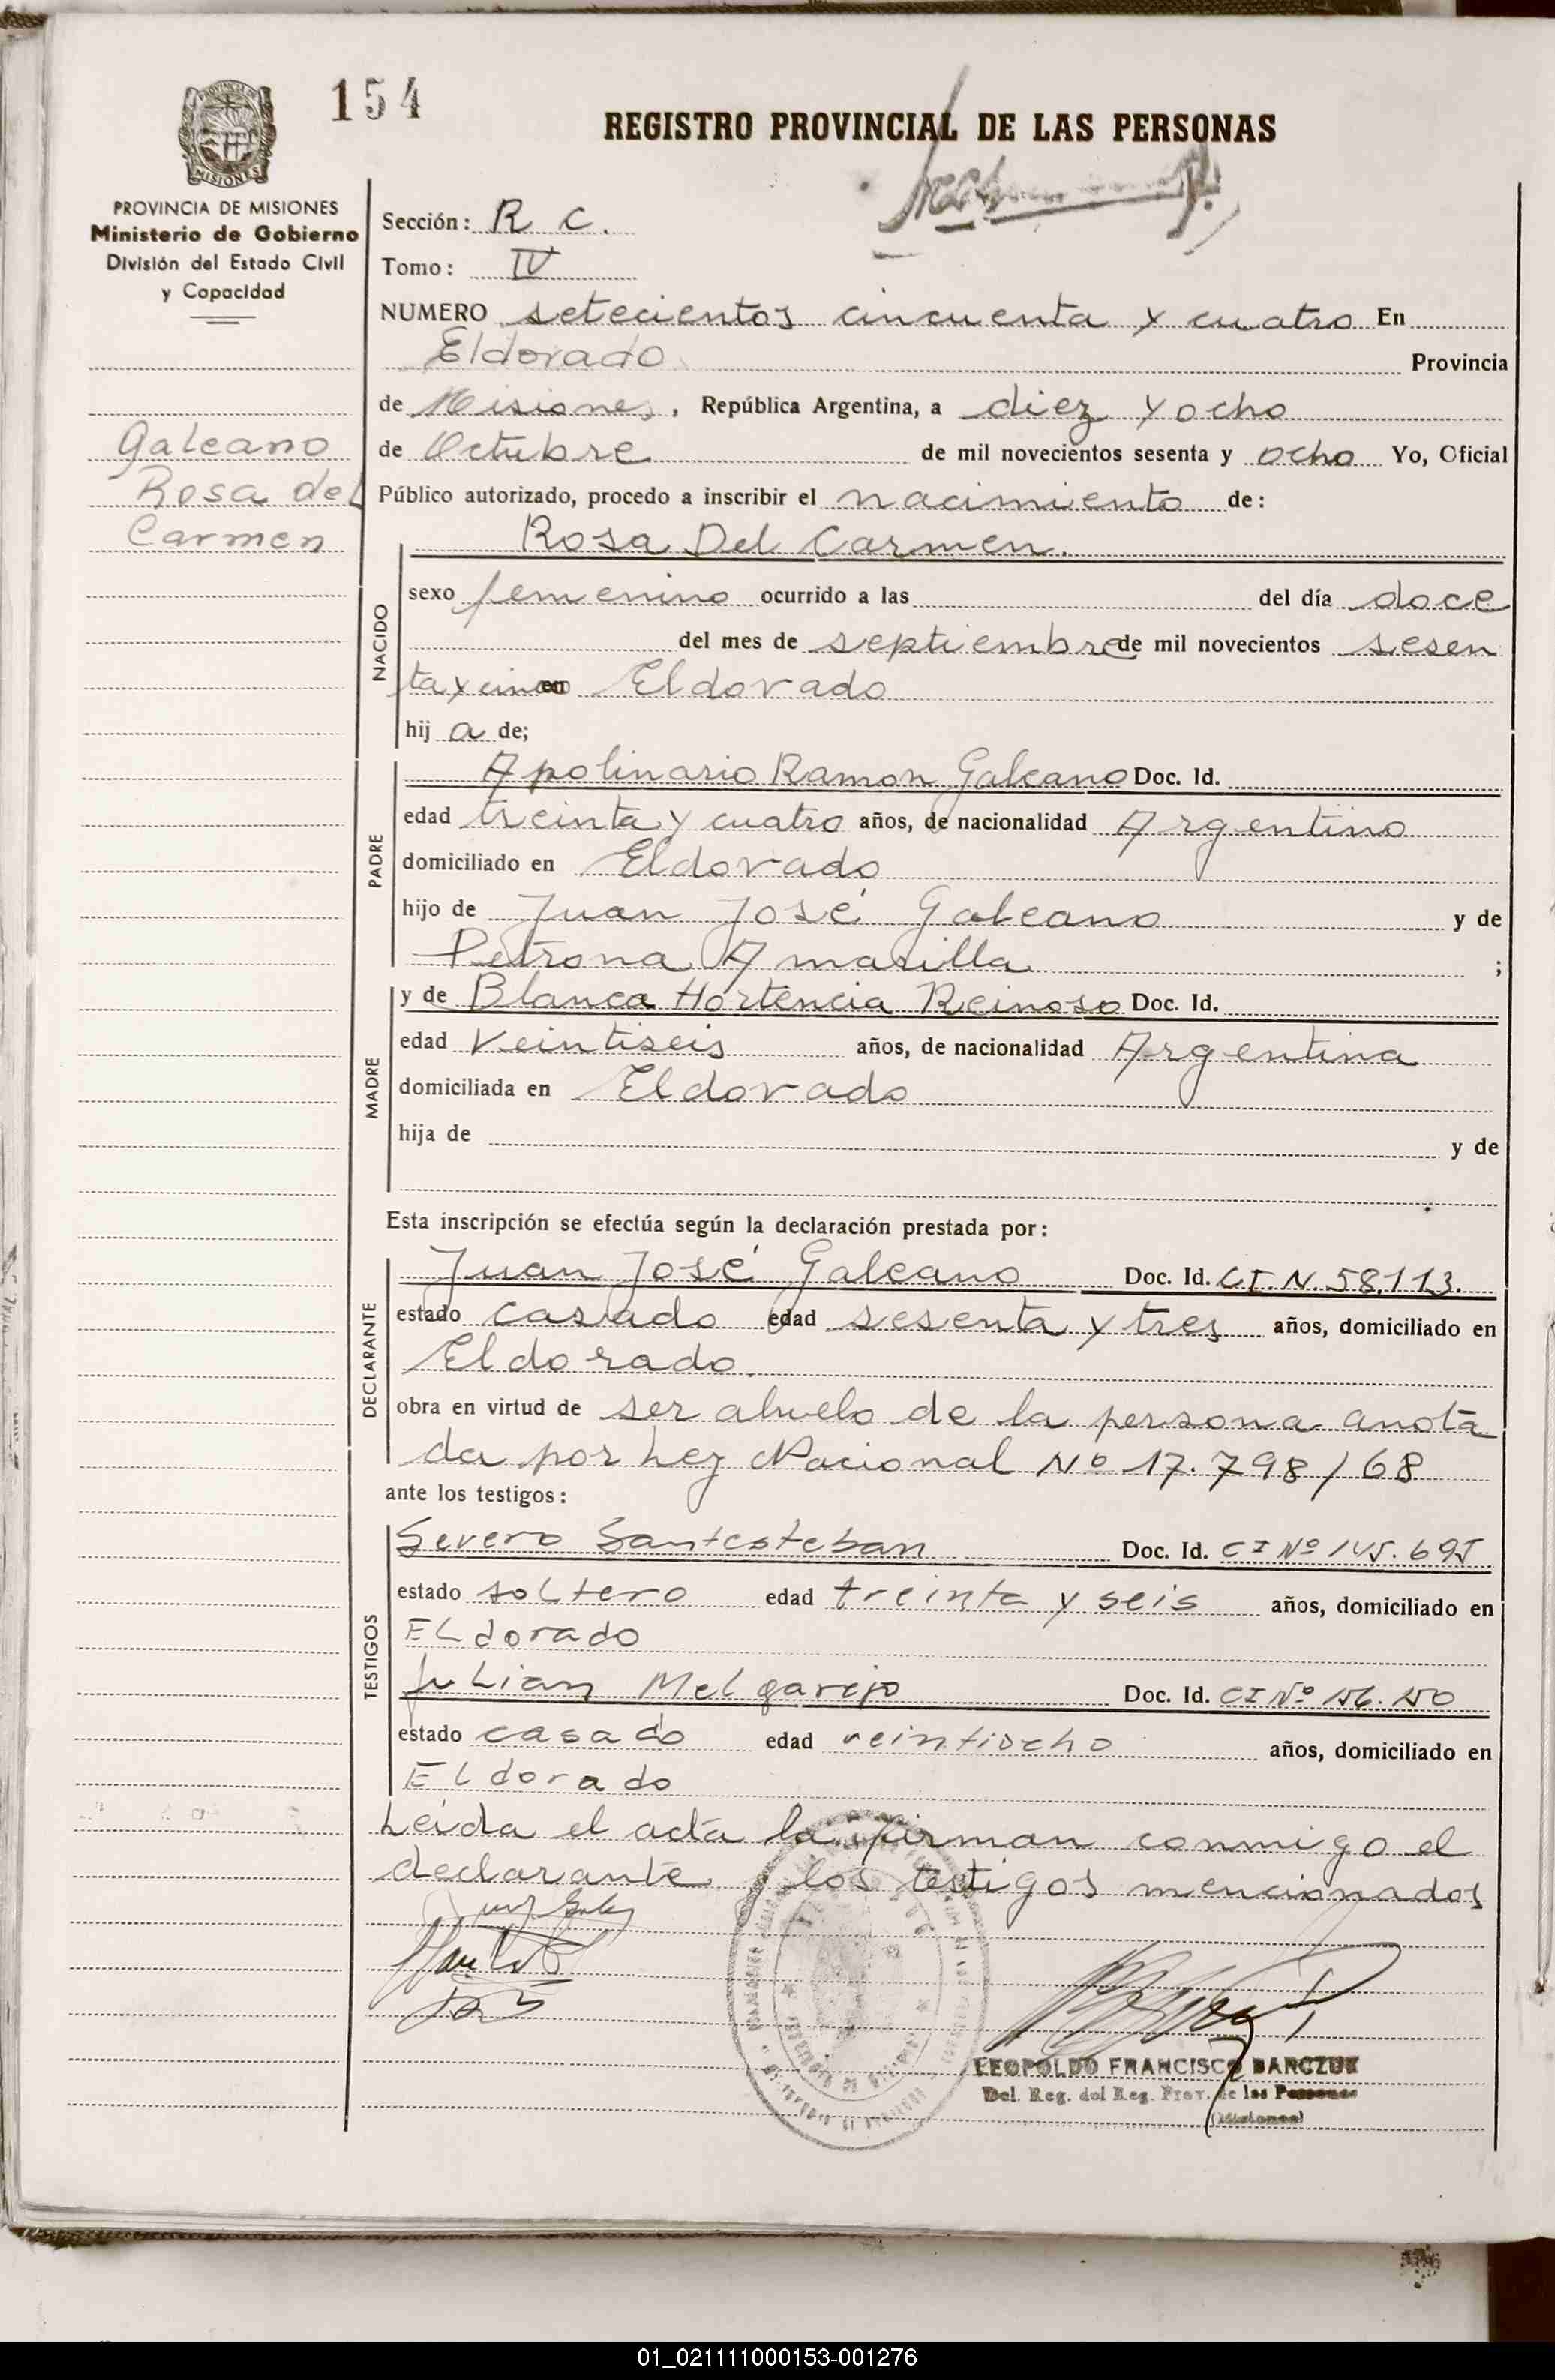 154
REGISTRO PROVINCIAL DE LAS PERSONAS
MISIONES
PROVINCIA DE MISIONES
Ministerio de Gobierno
División del Estado Civil
y Capacidad
Galeano
Rosa del
Carmen
Sección: R C.
Tomo: IV
NUMERO setecientos cincuenta y cuatro En
Eldorado Provincia
de Misiones, República Argentina, a diez y ocho
de Octubre de mil novecientos sesenta y ocho Yo, Oficial
Público autorizado, procedo a inscribir el nacimiento de:
Rosa Del Carmen.
NACIDO
sexo femenino ocurrido a las del día doce
del mes de septiembre de mil novecientos sesen
ta y cinco en Eldorado
hij a de;
PADRE
Apolinario Ramon Galeano Doc. Id.
edad treinta y cuatro años, de nacionalidad Argentino
domiciliado en Eldorado
hijo de Juan José Galeano y de
Petrona Amarilla ;
MADRE
y de Blanca Hortencia Reinoso Doc. Id.
edad Veintiseis años, de nacionalidad Argentina
domiciliada en Eldorado
hija de y de
Esta inscripción se efectúa según la declaración prestada por:
DECLARANTE
Juan José Galeano Doc. Id. CI N 58.113.
estado casado edad sesenta y tres años, domiciliado en
Eldorado.
obra en virtud de ser abuelo de la persona anota
da por Ley Nacional Nº 17.798/68
ante los testigos:
TESTIGOS
Severo Santesteban Doc. Id. CI Nº 145.695
estado soltero edad treinta y seis años, domiciliado en
ELdorado
Julian Melgarejo Doc. Id. CI Nº 156.150
estado casado edad veintiocho años, domiciliado en
ELdorado
Leida el acta la firman conmigo el
declarante y los testigos mencionados
LEOPOLDO FRANCISCO BARCZUK
Del. Reg. del Reg. Prov. de las Personas
(Misiones)
01_021111000153-001276